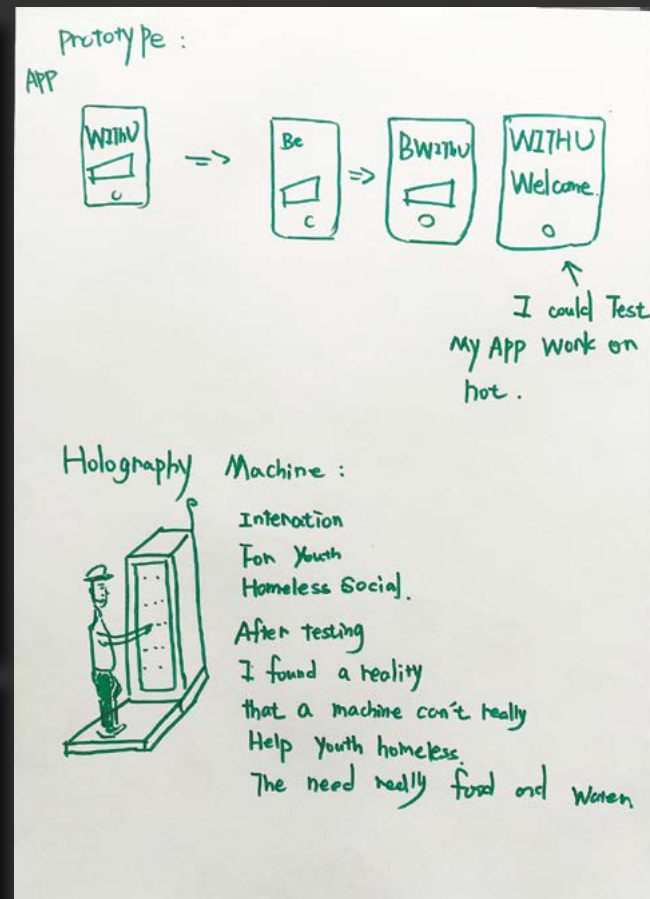 Prototype :
APP
WIThU
Be
BWIThU
WITHU
Welcome.
I could Test
My App Work on
not.
Holography Machine :
Interation
For Youth
Homeless Social.
After testing
I found a reality
that a machine can't really
Help youth homeless.
The need really food and Water